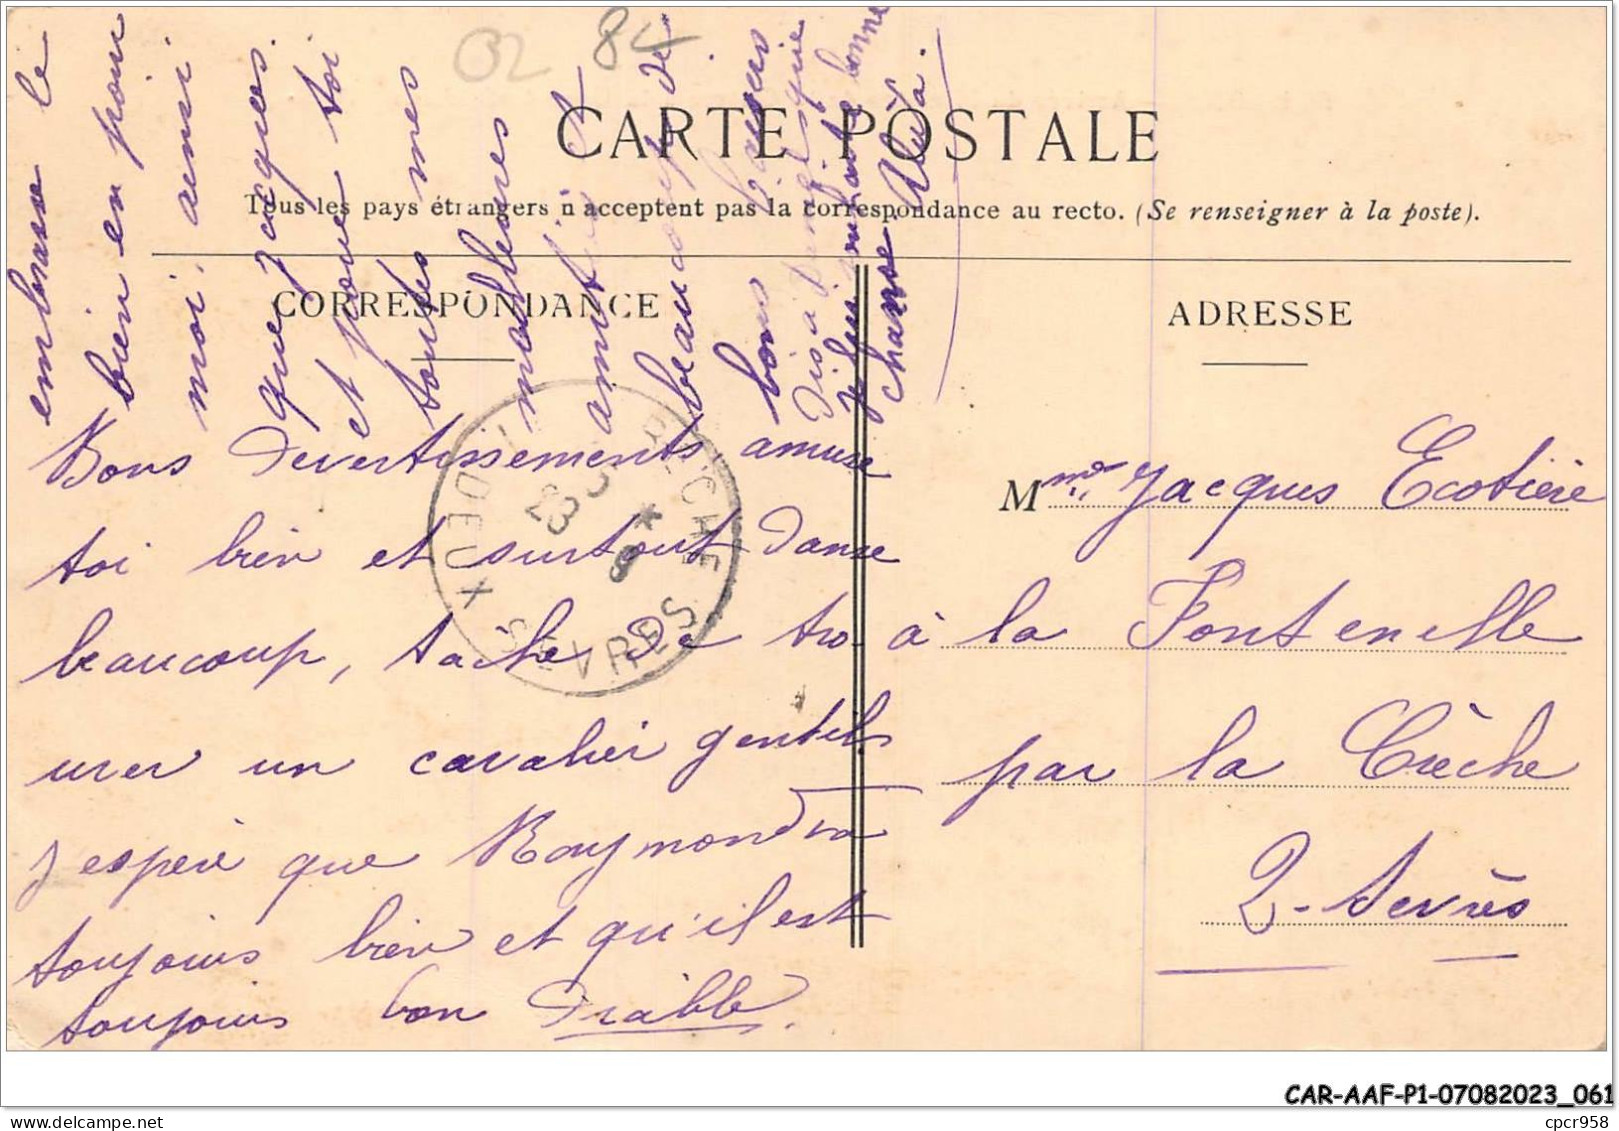 02 84
CARTE POSTALE
Tous les pays étrangers n'acceptent pas la correspondance au recto. (Se renseigner à la poste).
CORRESPONDANCE
ADRESSE
Bons divertissements, amuse
toi bien et surtout danse
beaucoup, tâche de tro
uver un cavalier gentil,
j'espère que Raymond va
toujours bien et qu'il est
toujours bon diable.
embrasse le
bien en pour
moi, ainsi
que Jacques
et pour toi
toutes mes
meilleures
amitiés et
beaucoup de
bons baisers
Dis à
je lui souhaite bonne
chance
Mme Jacques Ecotière
à la Fontenelle
par la Crèche
2-Sèvres
CRÈCHE
DEUX SEVRES
CAR-AAF-P1-07082023_061
cpcr958